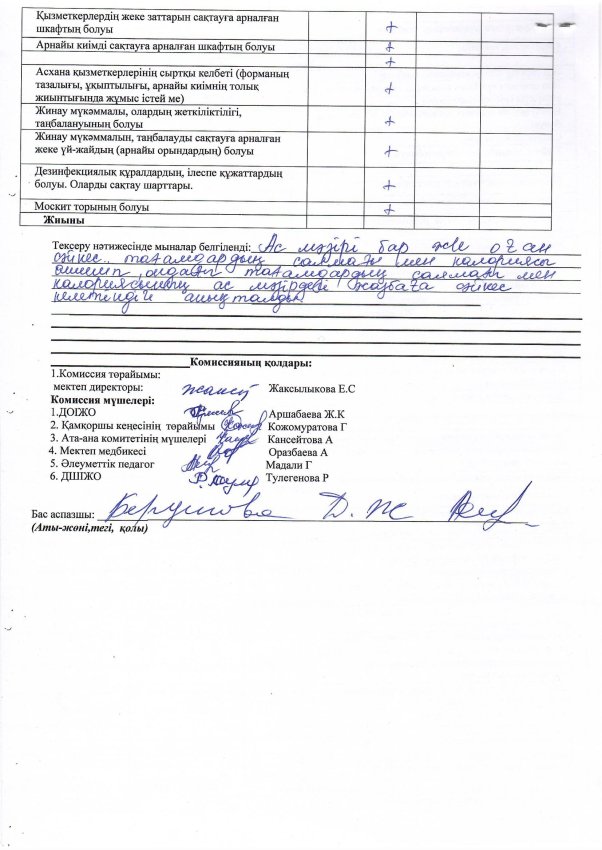 Қызметкерлердің жеке заттарын сақтауға арналған
шкафтың болуы +
Арнайы киімді сақтауға арналған шкафтың болуы +
+
Асхана қызметкерлерінің сыртқы келбеті (форманың
тазалығы, ұқыптылығы, арнайы киімнің толық
жиынтығында жұмыс істей ме) +
Жинау мүкәммалы, олардың жеткіліктілігі,
таңбалануының болуы +
Жинау мүкәммалын, таңбалауды сақтауға арналған
жеке үй-жайдың (арнайы орындардың) болуы +
Дезинфекциялық құралдардың, ілеспе құжаттардың
болуы. Оларды сақтау шарттары. +
Москит торының болуы +
Жиыны
Тексеру нәтижесінде мыналар белгіленді: Ас мәзірі бар және оған
сәйкес тағамдардың салмағы мен калориясы
өлшеніп, ондағы тағамдардың салмағы мен
калориясының ас мәзірдегі жазбаға сәйкес
келетіндігі анықталды
Комиссияның қолдары:
1.Комиссия төрайымы:
мектеп директоры: Жаксылыкова Е.С
Комиссия мүшелері:
1.ДОІЖО Аршабаева Ж.К
2. Қамқоршы кеңесінің төрайымы Кожомуратова Г
3. Ата-ана комитетінің мүшелері Кансейтова А
4. Мектеп медбикесі Оразбаева А
5. Әлеуметтік педагог Мадали Г
6. ДШІЖО Тулегенова Р
Бас аспазшы: Д. Ж
(Аты-жөні,тегі, қолы)